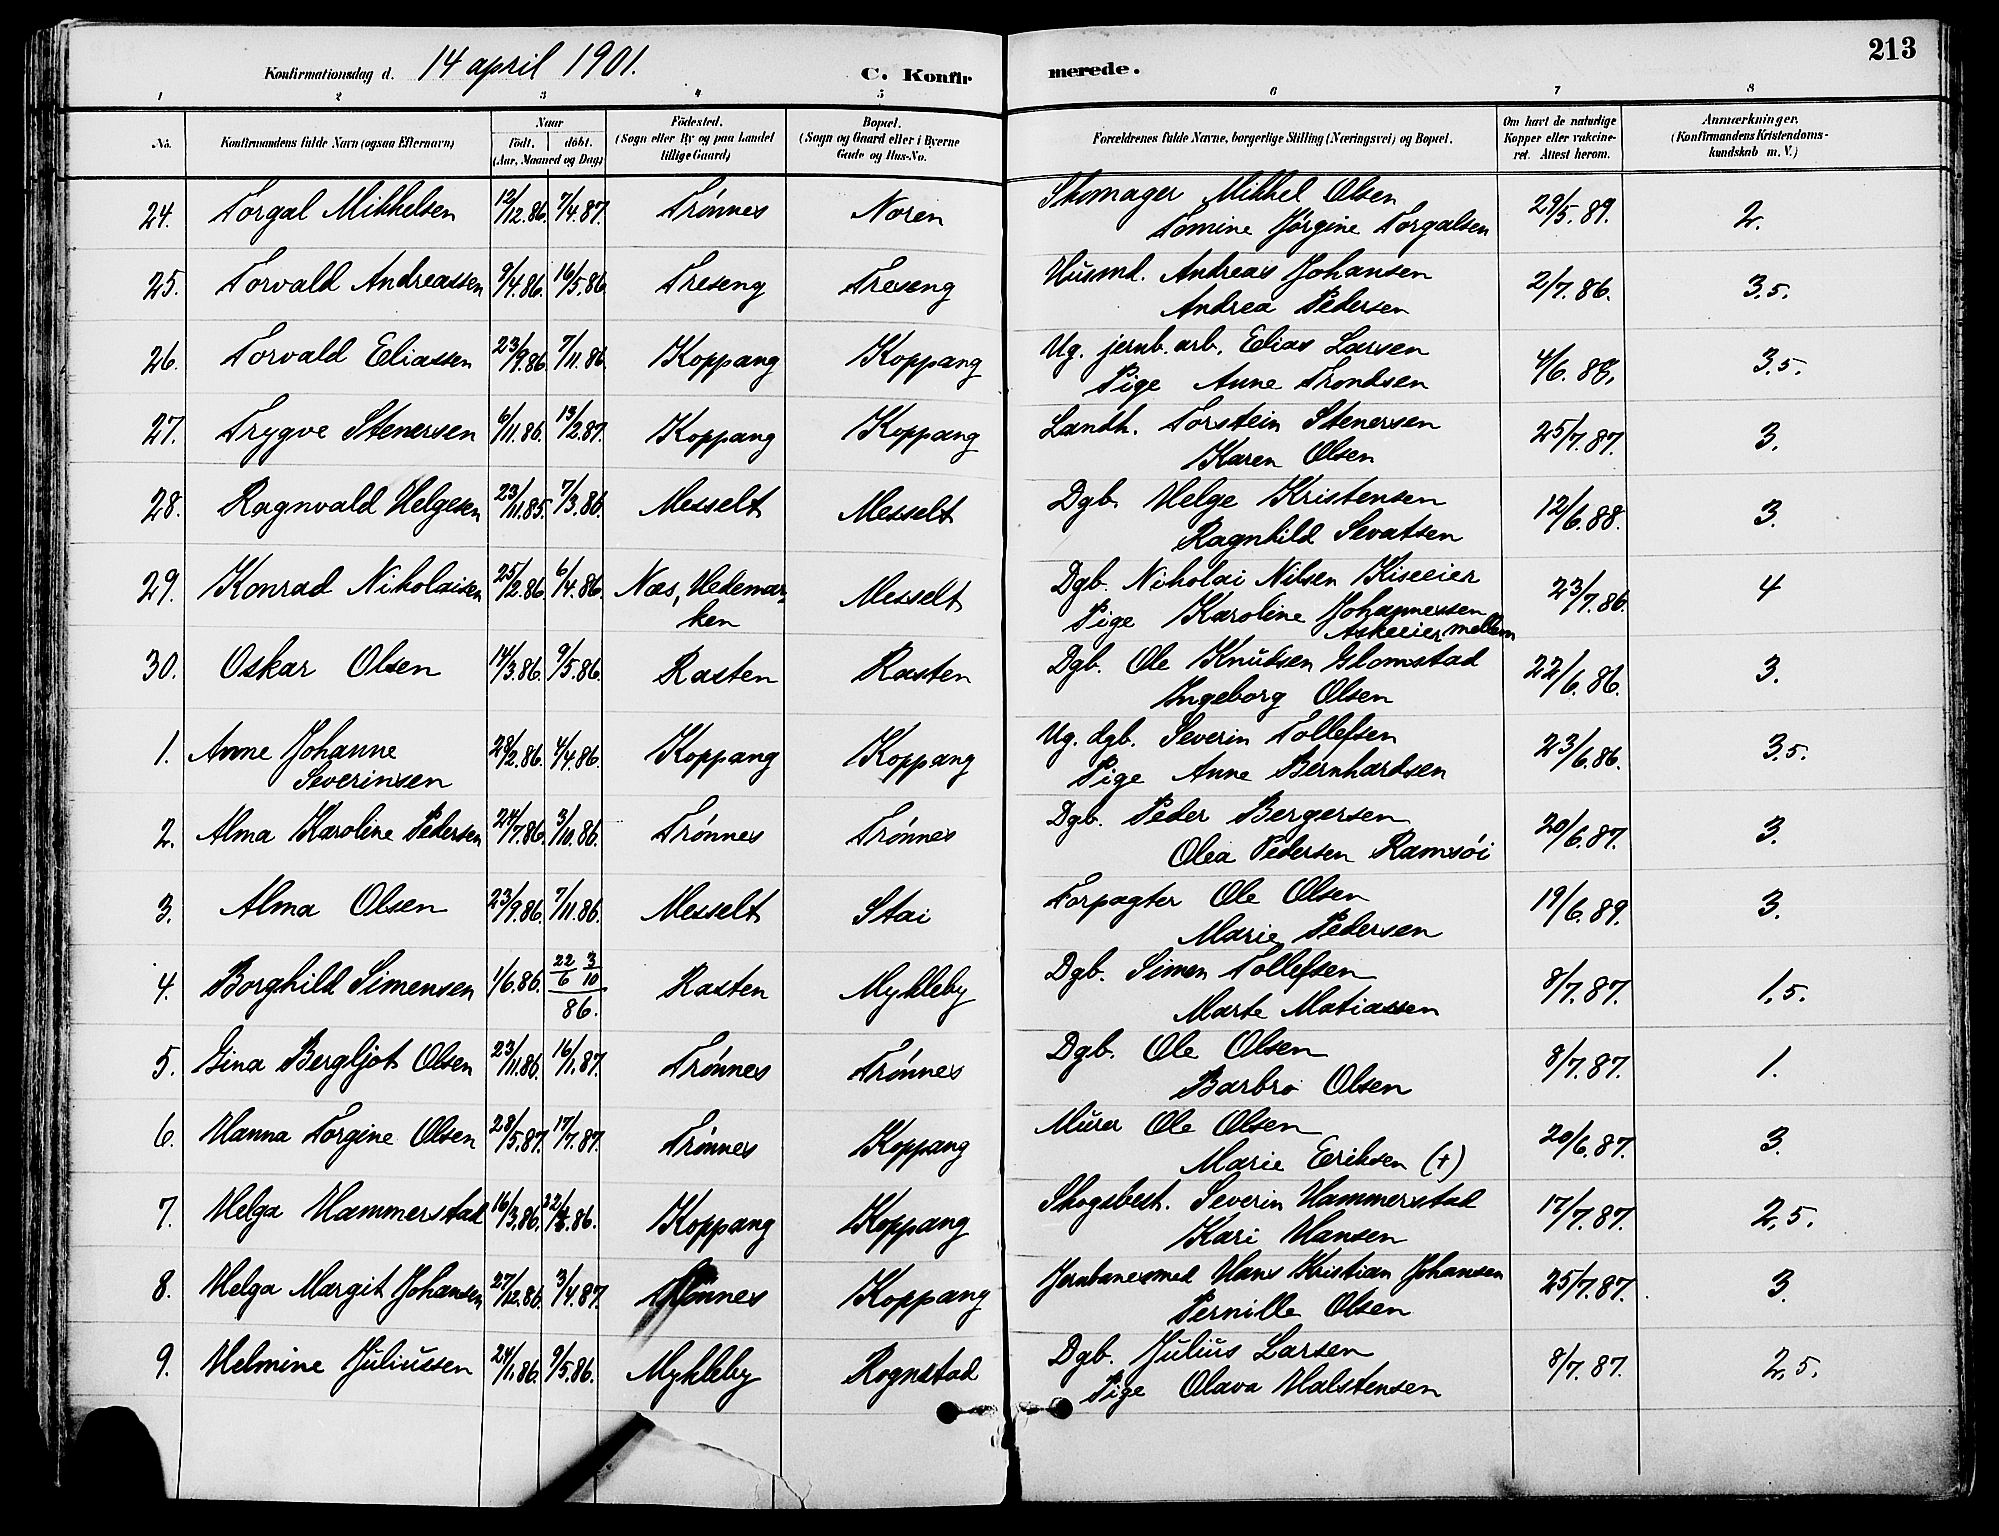 213
Konfirmationsdag d. 14 april 1901. C. Konfir merede.
1 2 3 4 5 6 7 8
No. Konfirmandens fulde Navn (ogsaa Efternavn) Naar födt. döbt. (Aar, Maaned og Dag) Födested. (Sogn eller By og paa Landet tillige Gaard) Bopæl. (Sogn og Gaard eller i Byerne Gade og Hus-No. Forældrenes fulde Navne, borgerlige Stilling (Næringsvei) og Bopæl. Om havt de naturlige Kopper eller vakcineret. Attest herom. Anmærkninger. (Konfirmandens Kristendomskundskab m. V.)
24. Torgal Mikkelsen 12/12.86. 7/4.87. Trönnes Noren Skomager Mikkel Olsen 29/5.89. 2.
Tomine Jörgine Torgalsen
25. Torvald Andreassen 9/4.86. 16/5.86. Treseng Treseng Husmd. Andreas Johansen 2/7.86. 3.5.
Andrea Pedersen
26. Torvald Eliassen 23/9.86. 7/11.86. Koppang Koppang Ug. jernb. arb. Elias Larsen 4/6.88. 3.5.
Pige Anne Trondsen
27. Trygve Stenersen 6/11.86. 13/2.87. Koppang Koppang Landh. Torstein Stenersen 25/7.87. 3.
Karen Olsen
28. Ragnvald Helgesen 23/11.85. 7/3.86. Messelt Messelt Dgb. Helge Kristensen 12/6.88. 3.
Ragnhild Sevatsen
29. Konrad Nikolaisen 25/2.86. 6/4.86. Næs, Hedemar- Messelt Dgb. Nikolai Nilsen Kiseeier 23/7.86. 4
ken Pige Karoline Johannessen
Askeeier mellem
30. Oskar Olsen 14/3.86. 9/5.86. Rasten Rasten Dgb. Ole Knudsen Glomstad 22/6.86. 3.
Ingeborg Olsen
1. Anne Johanne 28/2.86. 4/4.86. Koppang Koppang Ug. dgb. Severin Tollefsen 23/6.86. 3.5.
Severinsen Pige Anne Bernhardsen
2. Alma Karoline Pedersen 24/7.86. 3/10.86. Trönnes Trönnes Dgb. Peder Bergersen 20/6.87. 3.
Olea Pedersen Ramsöi
3. Alma Olsen 23/9.86. 7/11.86. Messelt Stai Forpagter Ole Olsen 19/6.89. 3.
Marie Pedersen
4. Borghild Simensen 1/6.86. 22/6 3/10 86. Rasten Mykleby Dgb. Simen Tollefsen 8/7.87. 1,5.
Marte Matiassen
5. Gina Bergljot Olsen 23/11.86. 16/1.87. Trönnes Trönnes Dgb. Ole Olsen 8/7.87. 1.
Barbro Olsen
6. Hanna Torgine Olsen 28/5.87. 17/7.87. Trönnes Koppang Murer Ole Olsen 20/6.87. 3.
Marie Eriksen (+)
7. Helga Hammerstad 16/3.86. Koppang Koppang Skogsbest. Severin Hammerstad 17/7.87. 2,5.
Kari Hansen
8. Helga Margit Johansen 27/12.86. 3/4.87. Trönnes Koppang Jernbanesmed Hans Kristian Johansen 25/7.87. 3.
Pernille Olsen
9. Helmine Juliussen 24/1.86. 9/5.86. Mykleby Rognstad Dgb. Julius Larsen 8/7.87. 2,5.
Pige Olava Halstensen